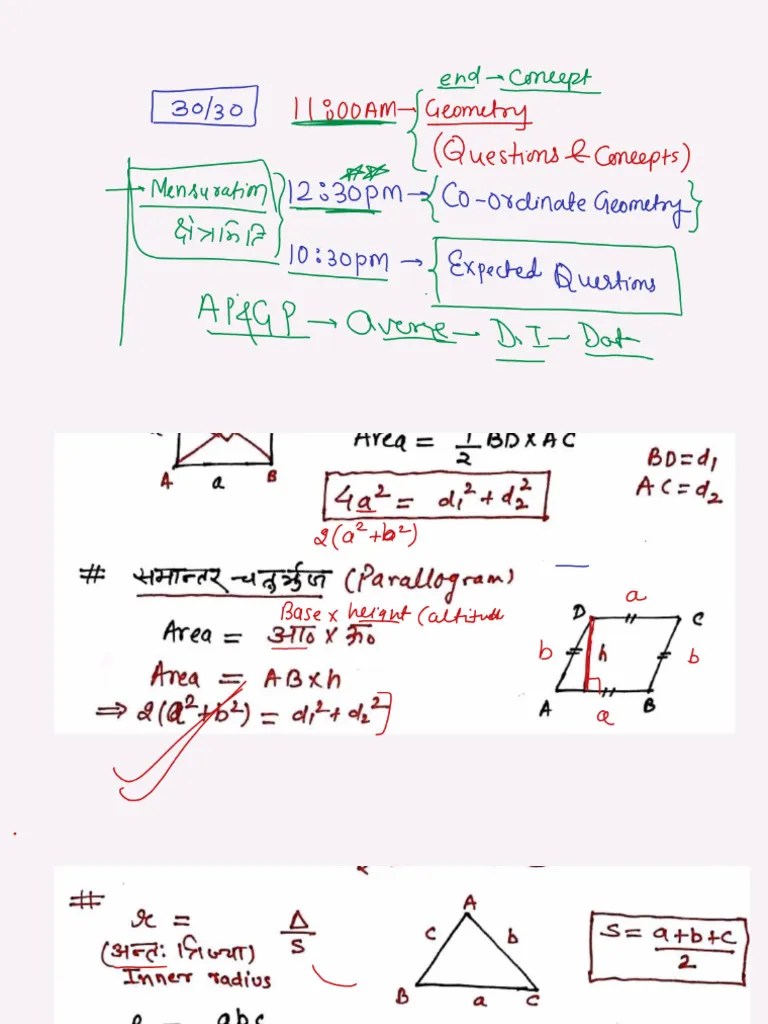 end → Concept
30/30 11:00AM → Geometry
(Questions & Concepts)
→ Mensuration 12:30pm → Co-ordinate Geometry
क्षेत्रमिति
10:30pm → Expected Questions
AP & GP → Averse → D.I → Dat
Area = 1/2 BD×AC
A a B
BD = d₁
AC = d₂
4a² = d₁² + d₂²
2(a²+b²)
# समान्तर-चतुर्भुज (Parallogram)
Base × height (altitude
Area = आ० × ऊ०
Area = AB×h
⇒ 2(a²+b²) = d₁² + d₂²
D a C
b h b
A a B
# r = Δ/S
(अन्तः त्रिज्या)
Inner radius
A
c b
B a C
S = a+b+c/2
abc